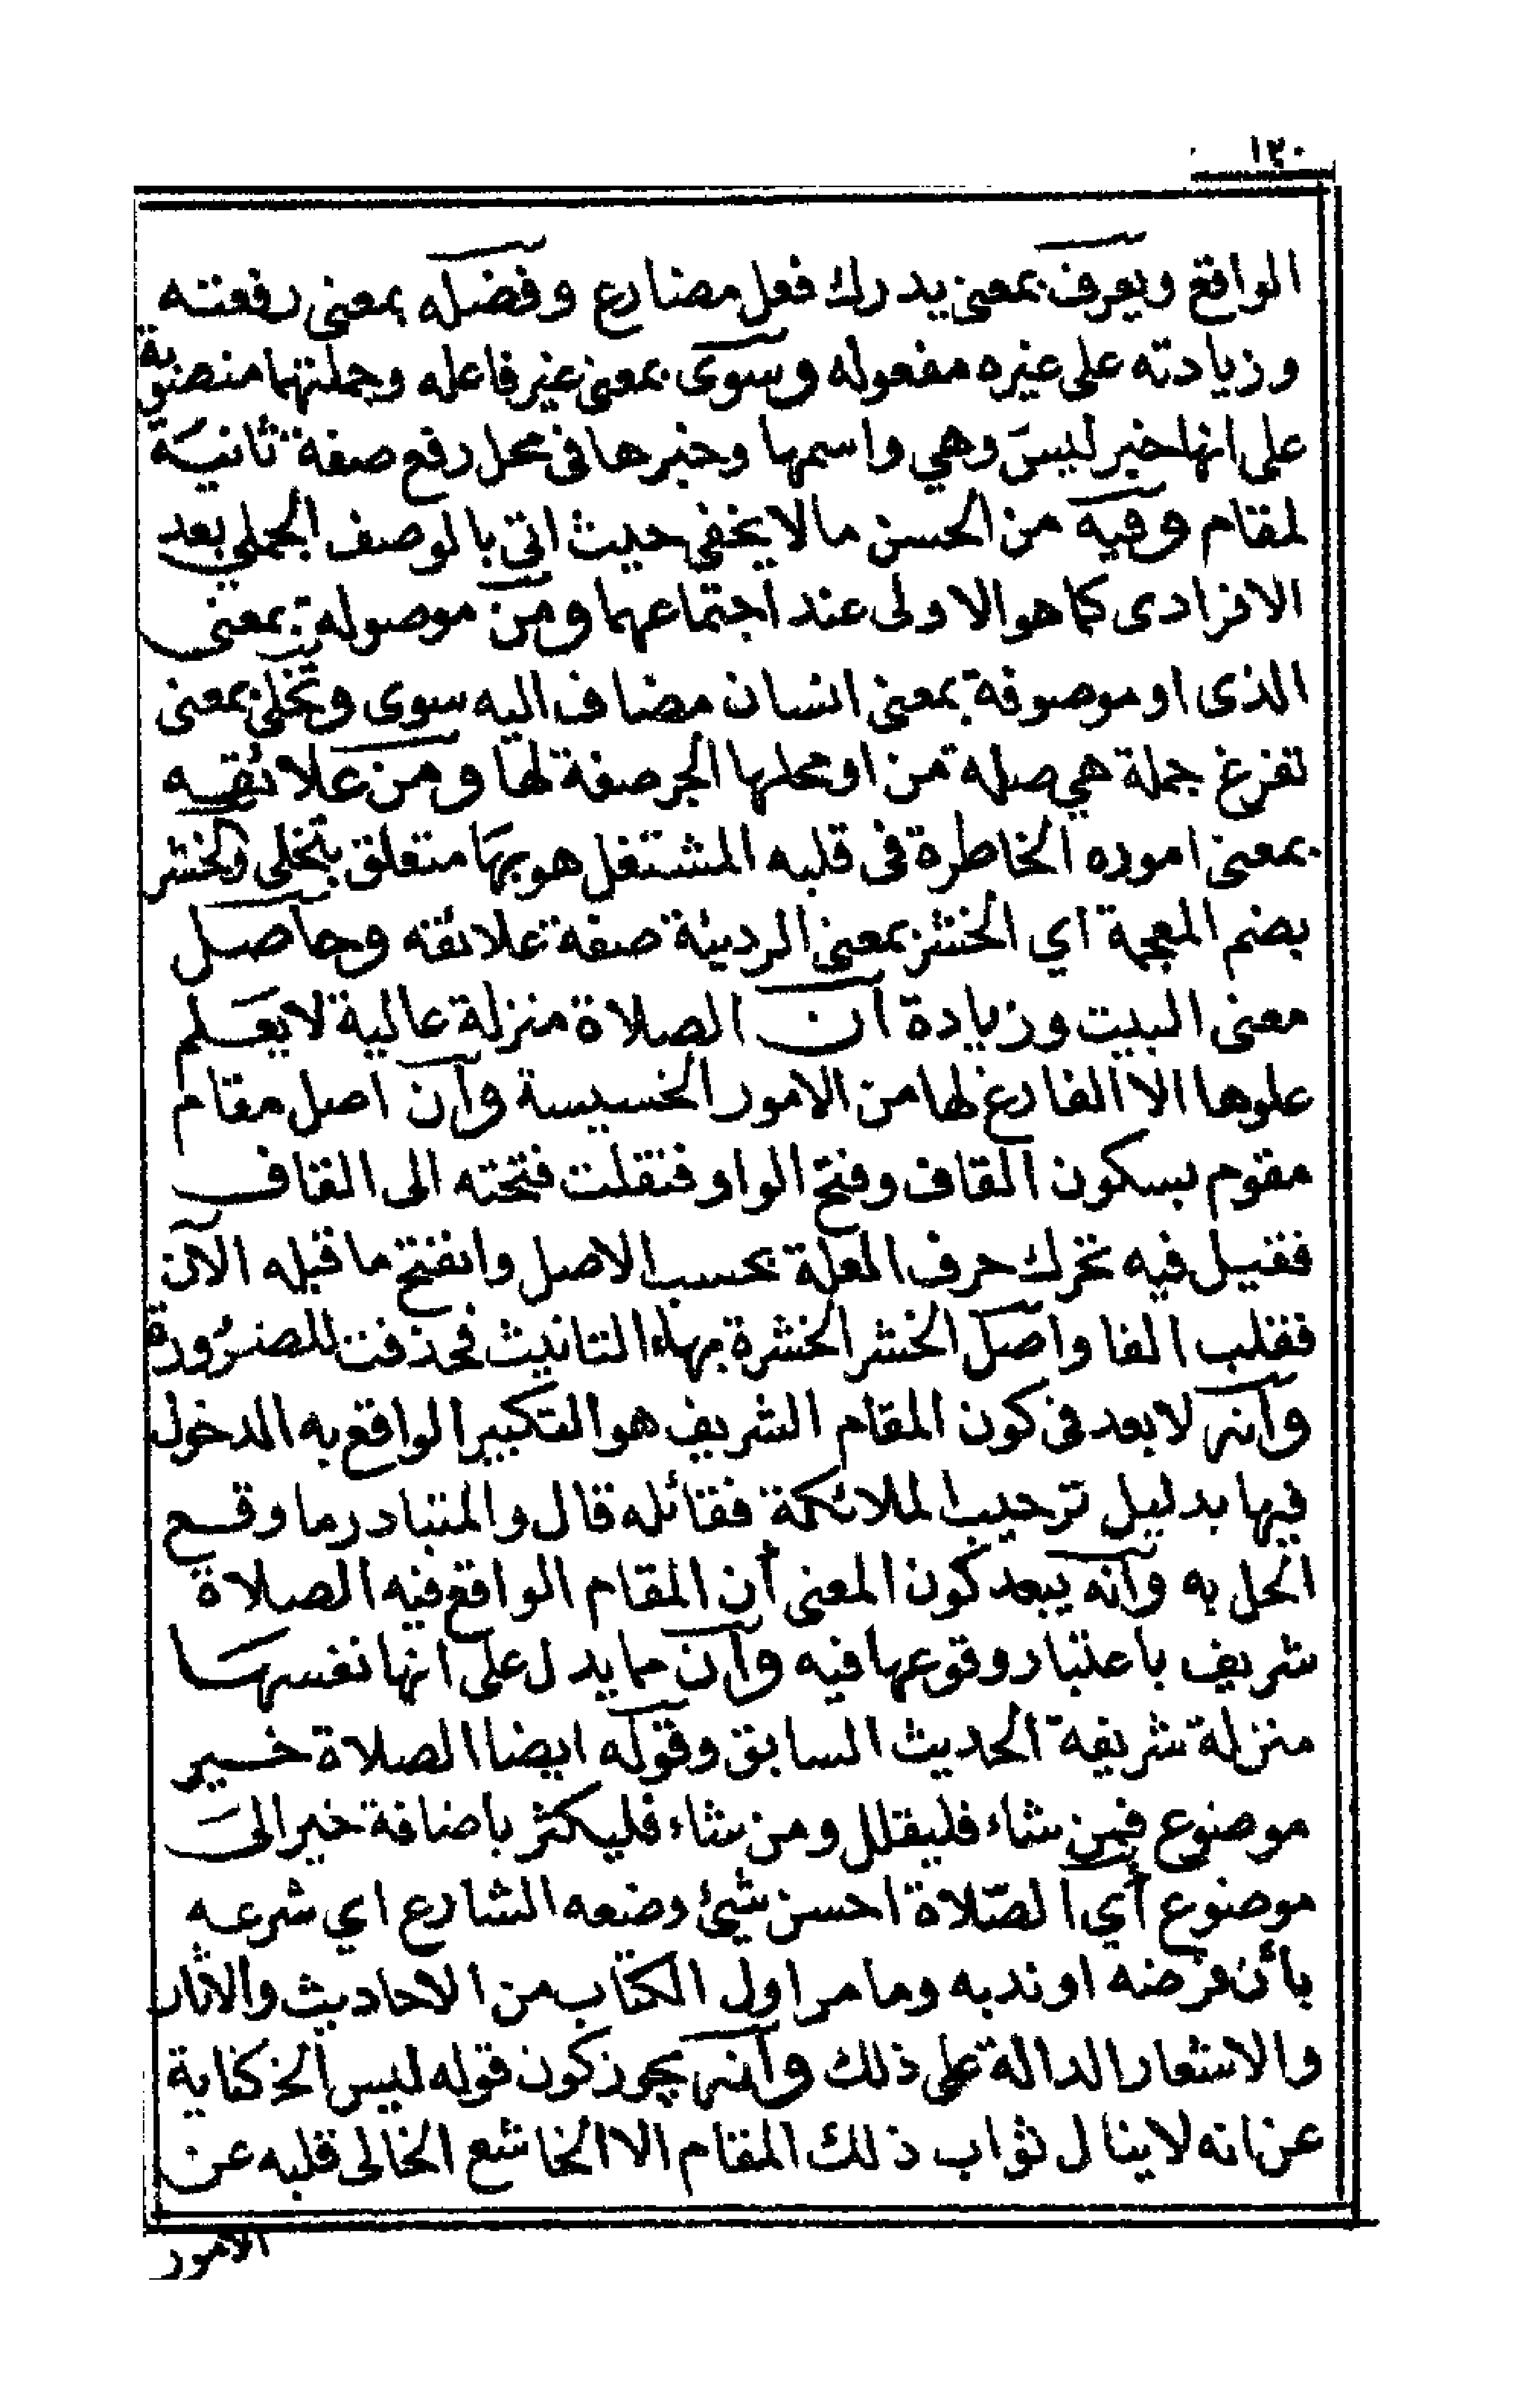 ١٢٠
الواقع ويعرف بمعنى يدرك فعل مضارع وفضله بمعنى رفعته
وزيادته على غيره مفعوله وسوى بمعنى غير فاعله وجملتها منصوبة
على انها خبر ليس وهي واسمها وخبرها في محل رفع صفة ثانية
لمقام وفيه من الحسن مالا يخفي حيث اتى بالوصف الجملي بعد
الافرادى كما هو الاولى عند اجتماعهما ومن موصولة بمعنى
الذى او موصوفة بمعنى انسان مضاف اليه سوى وتخلى بمعنى
تفرغ جملة هي صلة من او محلها الجر صفة لها ومن علائقه
بمعنى اموره الخاطرة في قلبه المشتغل هو بها متعلق بتخلى والخشر
بضم المعجمة اي الخشر بمعنى الرديئة صفة علائقه وحاصل
معنى البيت وزيادة ان الصلاة منزلة عالية لا يعلم
علوها الا الفارغ لها من الامور الخسيسة وان اصل مقام
مقوم بسكون القاف وفتح الواو فنقلت فتحته الى القاف
فقيل فيه تحرك حرف العلة بحسب الاصل وانفتح ما قبله الآن
فقلب الفا واصل الخشر الخشرة بهاء التانيث فحذفت للضرورة
وانه لا بعد في كون المقام الشريف هو التكبير الواقع به الدخول
فيها بدليل ترحيب الملائكة فقائله قال والمتبادر ما وقع
الحل به وانه يبعد كون المعنى أن المقام الواقع فيه الصلاة
شريف باعتبار وقوعها فيه وان مما يدل على انها نفسها
منزلة شريفة الحديث السابق وقوله ايضا الصلاة خير
موضوع فمن شاء فليقلل ومن شاء فليكثر باضافة خير الى
موضوع أي الصّلاة احسن شيئ وضعه الشارع اي شرعه
بأن فرضه او ندبه وما مر اول الكتاب من الاحاديث والاثار
والاشعار الدالة على ذلك وانه يجوز كون قوله ليس الخ كناية
عن انه لا ينال ثواب ذلك المقام الا الخاشع الخالى قلبه عن
الامور